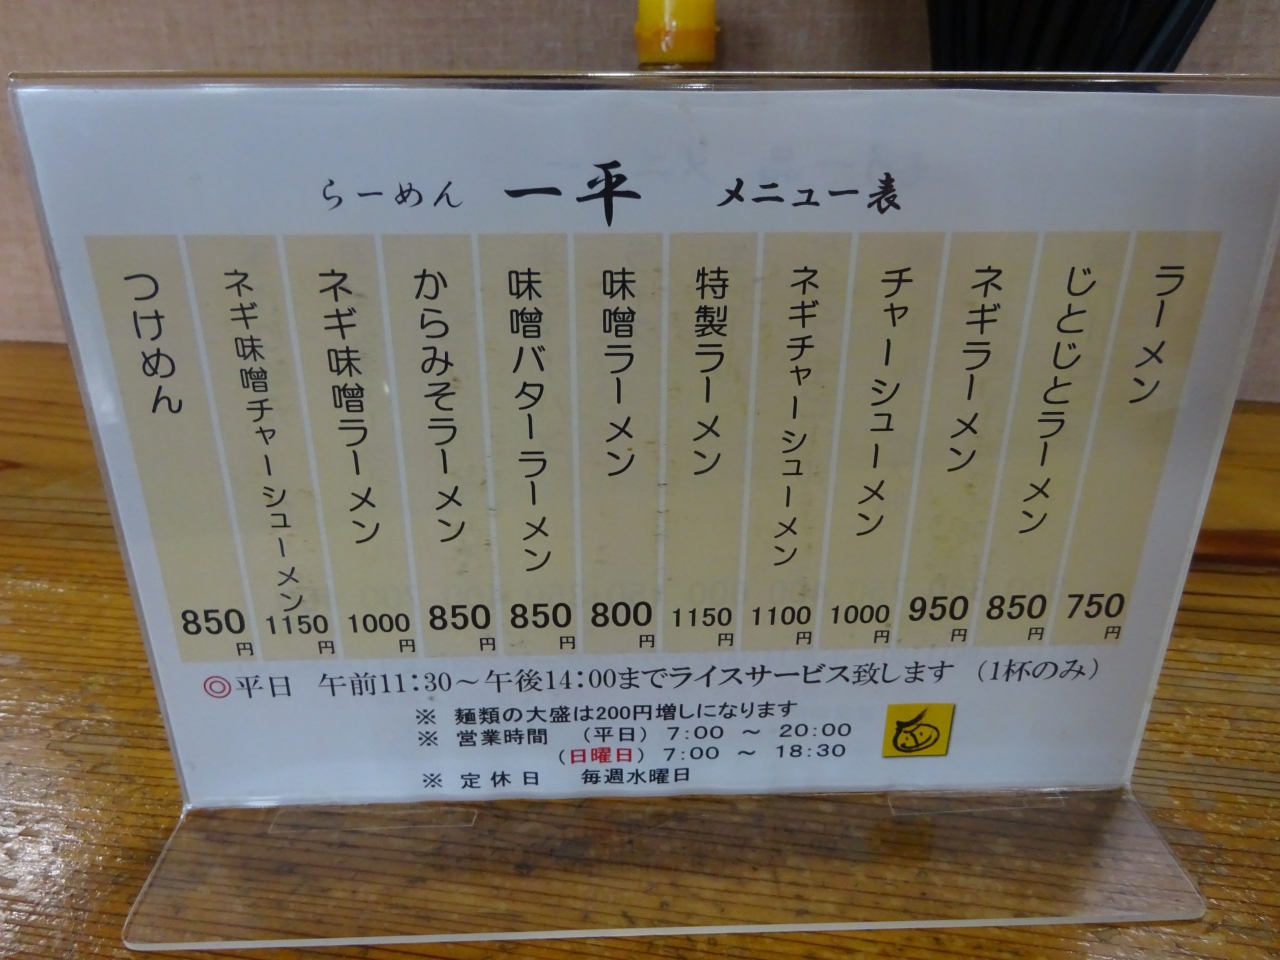 らーめん 一平 メニュー表
ラーメン 750円
じとじとラーメン 850円
ネギラーメン 950円
チャーシューメン 1000円
ネギチャーシューメン 1100円
特製ラーメン 1150円
味噌ラーメン 800円
味噌バターラーメン 850円
からみそラーメン 850円
ネギ味噌ラーメン 1000円
ネギ味噌チャーシューメン 1150円
つけめん 850円
◎平日 午前11:30～午後14:00までライスサービス致します (1杯のみ)
※ 麺類の大盛は200円増しになります
※ 営業時間 (平日) 7:00 ～ 20:00
(日曜日) 7:00 ～ 18:30
※ 定休日 毎週水曜日